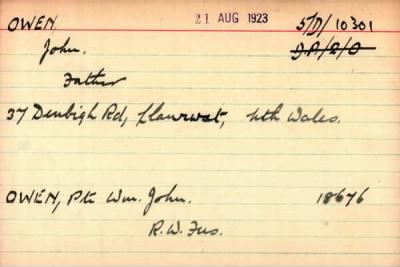 OWEN, 21 AUG 1923 5/D/10301
John. D.P./2/O
Father
37 Denbigh Rd, Llanrwst, Nth Wales.
OWEN, Pte Wm. John. 18676
R.W. Fus.